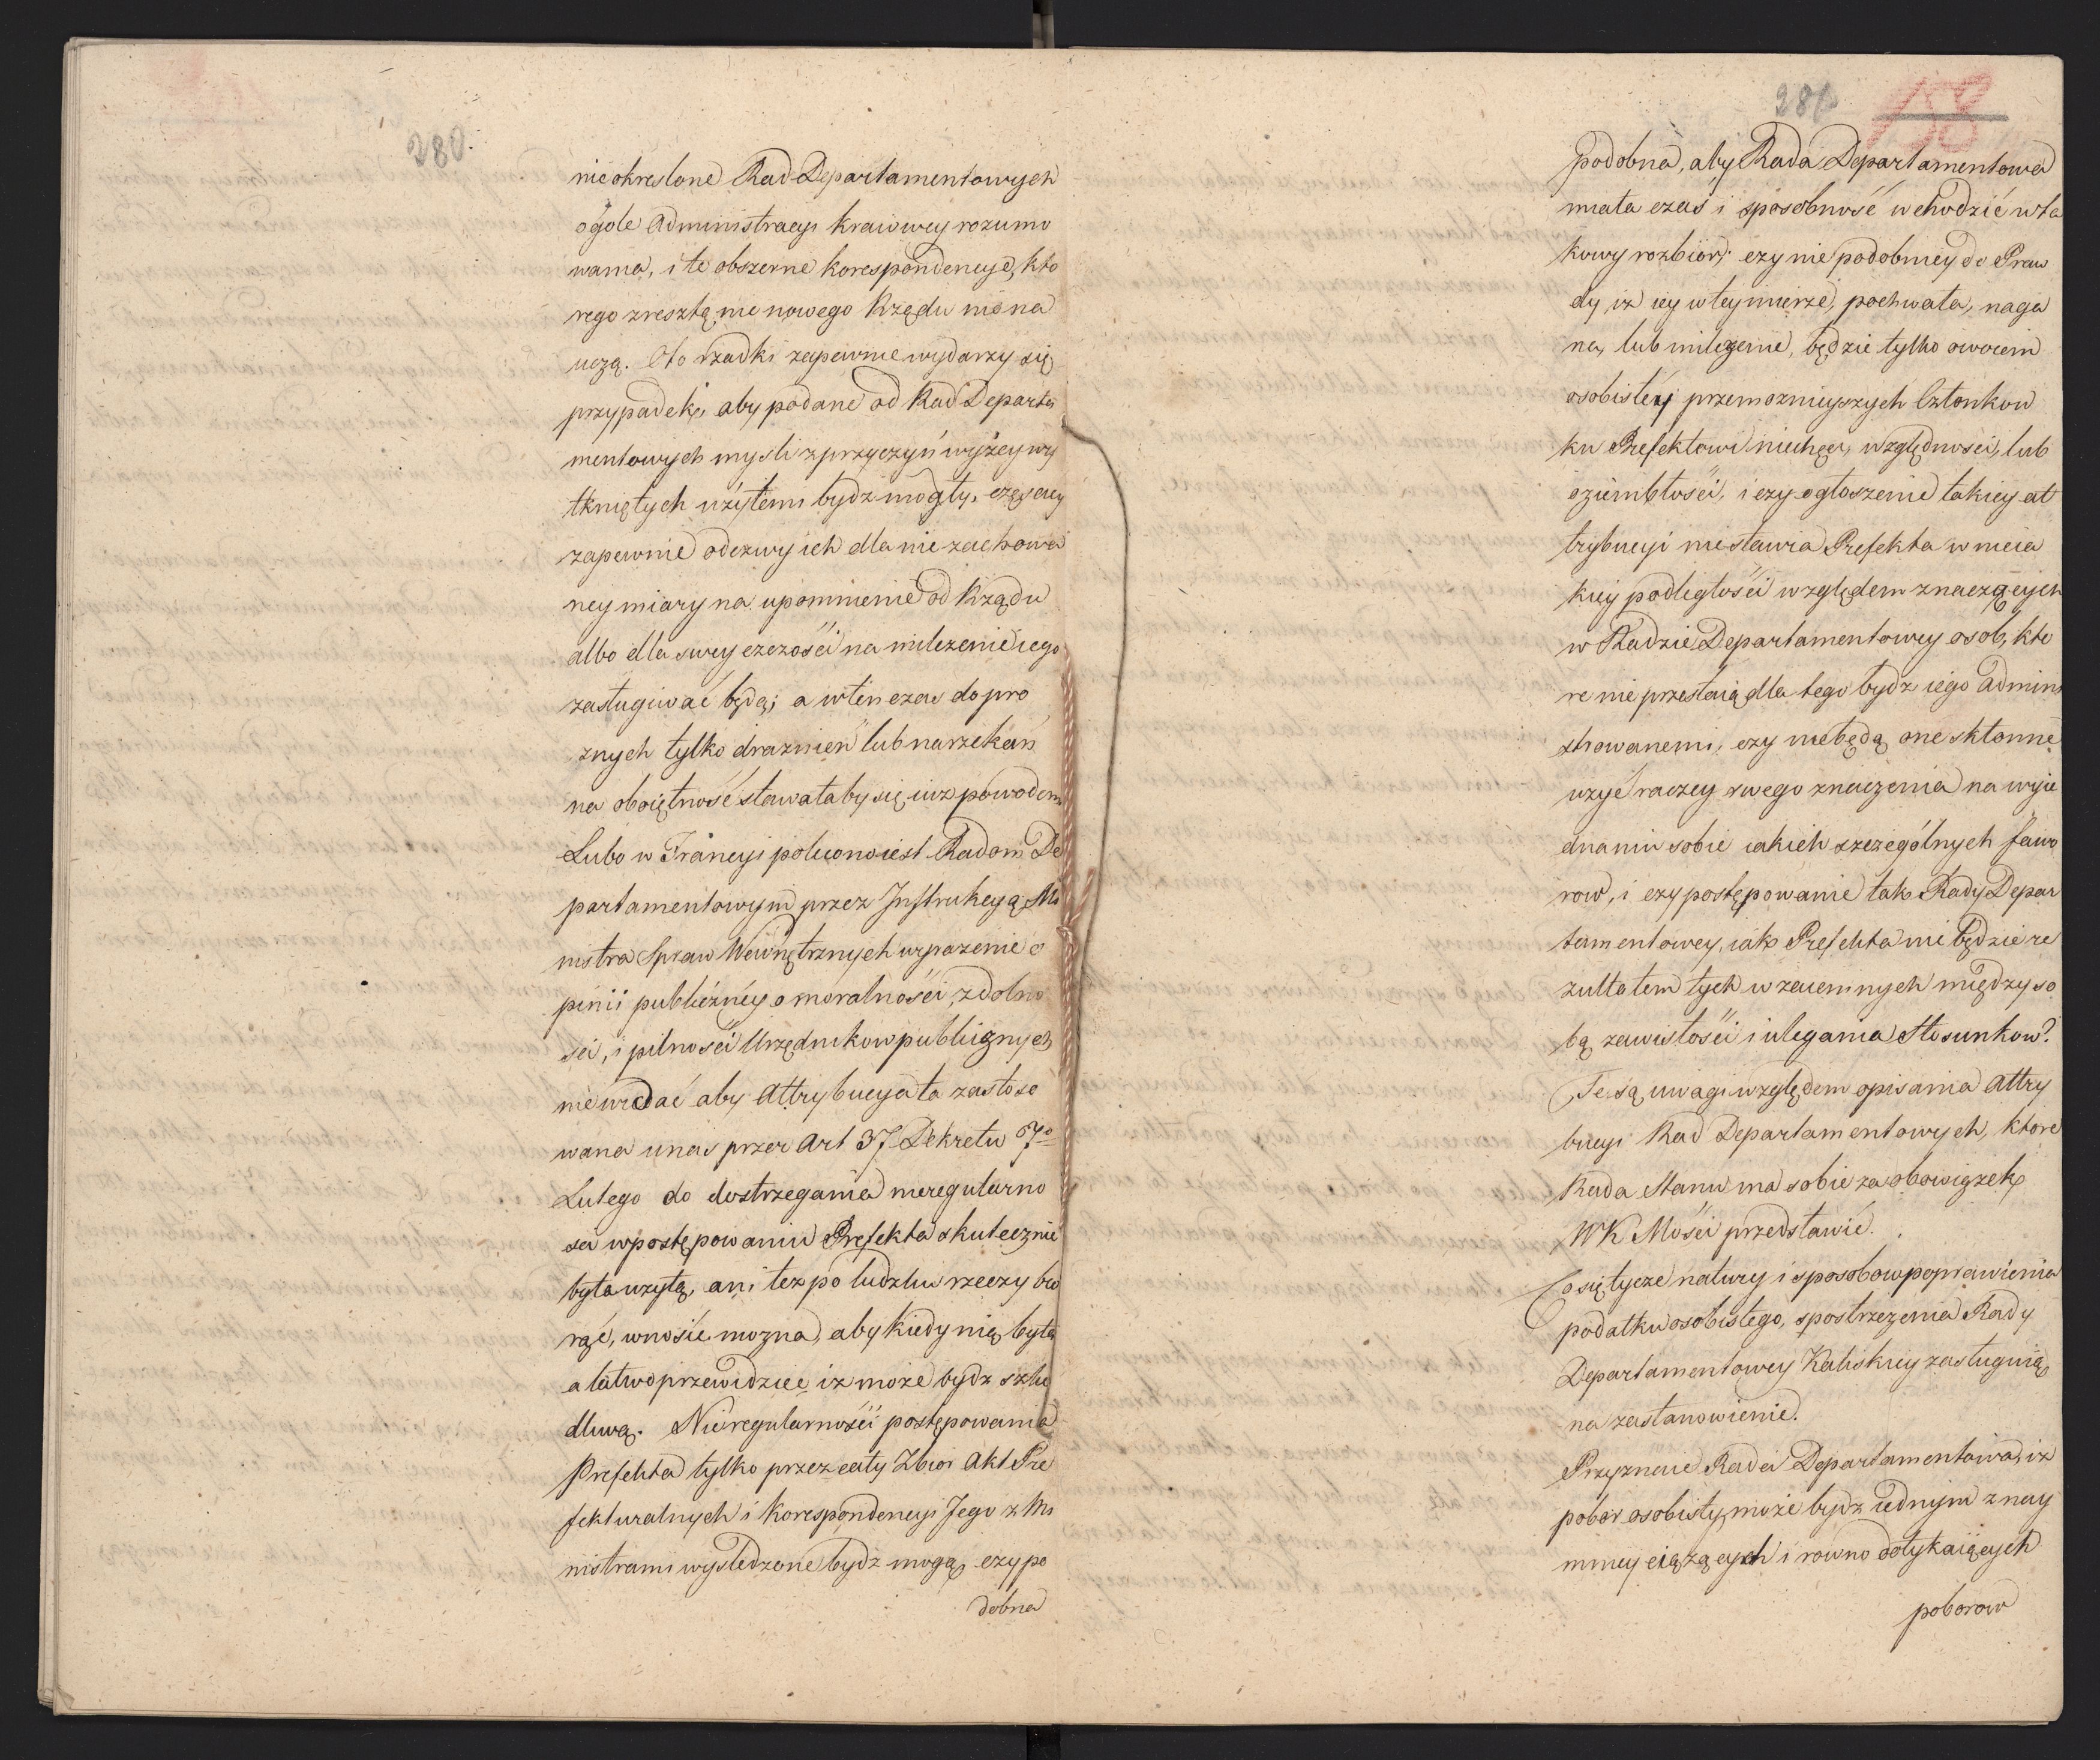 280.
nieokreslone Rad Departamentowych
ogole Administracyi kraiowey rozumo
wania, i te obszerne korespondencye, kto
rego zresztą nic nowego Rządu nie na
uczą. Oto rzadki zapewnie wydarzy się
przypadek, aby podane od Rad Departa
mentowych mysli z przyczyn wyżey wy
tkniętych użytemi bydz mogły, częsciey
zapewnie odezwy ich dla nie zachowa
ney miary na upomnienie od Rządu
albo dla swey czczości na milczenie iego
zasługiwać będą; a wten czas do pro
znych tylko draznień lub narzekań
na oboiętność stawałaby się iuz powodem
Lubo w Francyi polecono iest Radom De
partamentowym przez Instrukcyą Mi
nistra Spraw Wewnętrznych wyrazenie o
pinii publiczney o moralności, zdolno
sci, i pilności Urzędnikow publicznych
nie widać aby Attrybucya ta zastoso
wana u nas przez Art 37 Dekretu 7º
Lutego do dostrzegania nieregularno
sci w postępowaniu Prefekta skutecznie
była użytą, ani tez po ludzku rzeczy bio
rąc, wnosić mozna, aby kiedy nią była
a łatwo przewidzieć iz może bydz szko
dliwą. Nieregularności postępowania
Prefekta tylko przez cały Zbior Akt Pre
fekturalnych i korespondencyi Jego z Mi
nistrami wysledzone bydz mogą, czy po
dobna
281
158
podobna, aby Rada Departamentowa
miała czas i sposobność wchodzić w ta
kowy rozbior; czy nie podobniey do Praw
dy, iz iey w tey mierze, pochwała, naga
na, lub milczenie, będzie tylko owocem
osobistey przemoznieyszych Członkow
ku Prefektowi niechęci, względności, lub
oziembłości, i czy ogłoszenie takiey at
trybucyi niestawia Prefekta w nieia
kiey podległości względem znaczących
w Radzie Departamentowey osob, kto
re nie przestaią dla tego bydz iego admini
strowanemi, czy niebędą one skłonne
użyć raczey swego znaczenia na wyie
dnaniu sobie iakich szczególnych fawo
row, i czy postępowanie tak Rady Depar
tamentowey, iako Prefekta nie będzie re
zultatem tych wzaiemnych między so
bą zawisłości i ulegania stosunkow?
Te są uwagi względem opisania Attry
bucyi Rad Departamentowych, ktore
Rada Stanu ma sobie za obowiązek
WK Mości przedstawić.
Co się tycze natury i sposobow poprawienia
podatku osobistego, spostrzezenia Rady
Departamentowey Kaliskiey zasługuią
na zastanowienie.
Przyznaie Rada Departamentowa, iz
pobor osobisty może bydz iednym z nay
mniey ciążących i rowno dotykaiących
poborow